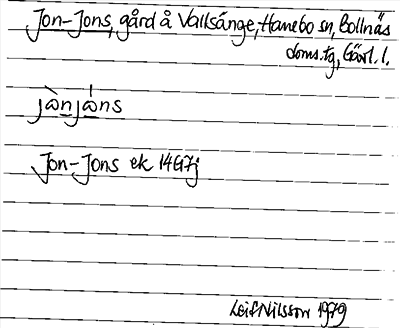 Jon-Jons, gård å Vallsänge, Hanebo sn, Bollnäs
doms.tg, Gävl. l.
Jon-Jons ek 14G7j
Leif Nilsson 1979